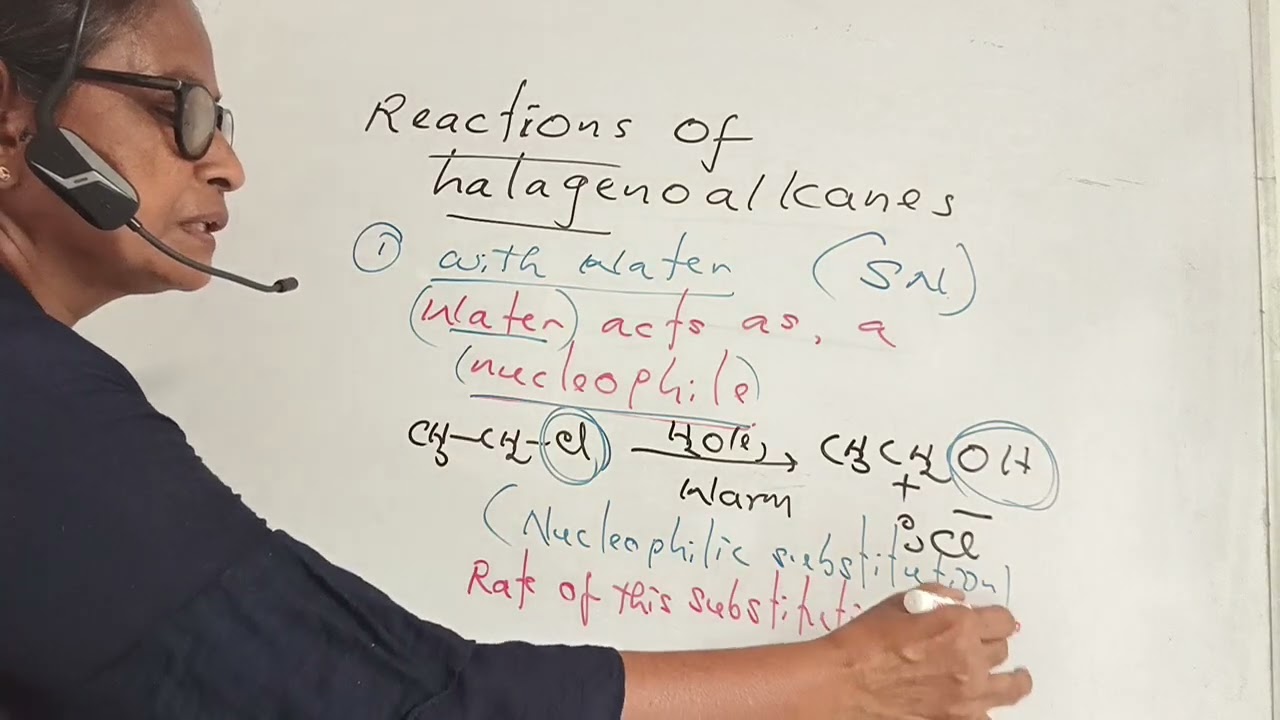 Reactions of
halagenoalkanes
① with water (SN)
(Water) acts as, a
(nucleophile)
CH₃—CH₂—Cl H₂O(l) → CH₃CH₂OH
warm +
:Cl⁻
(Nucleophilic substitution)
Rate of this substituti